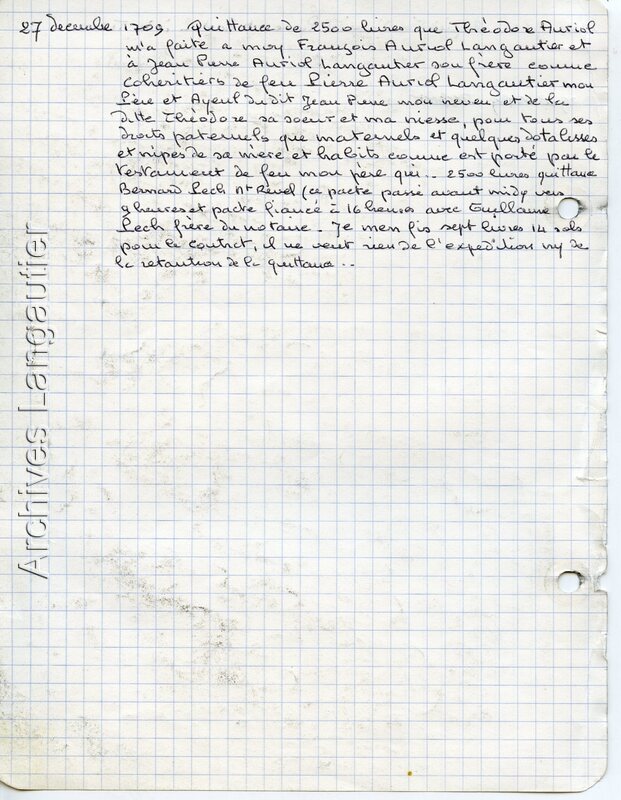 27 decembre 1709 Quittance de 2500 livres que Théodore Auriol
m'a faite a moy François Auriol Langautier et
à Jean Pierre Auriol Langautier son frère comme
coheritiers de feu Pierre Auriol Langautier mon
Père et Ayeul dudit Jean Pierre mon neveu, et de la
ditte Théodore sa soeur et ma niesse, pour tous ses
droits paternels que maternels et quelques dotalisses
et nipes de sa mère et habits comme est porté par le
testament de feu mon père qui.. 2500 livres quittance
Bernard Pech nre Revel (ce pacte passé avant midy vers
9 heures et pacte fiancé à 16 heures avec Guillaume
Pech frère du notaire. Je men fis sept livres 14 sols
pour le contract, il ne veut rien de l'expedition ny de
la retention de la quittance ..
Archives Langautier